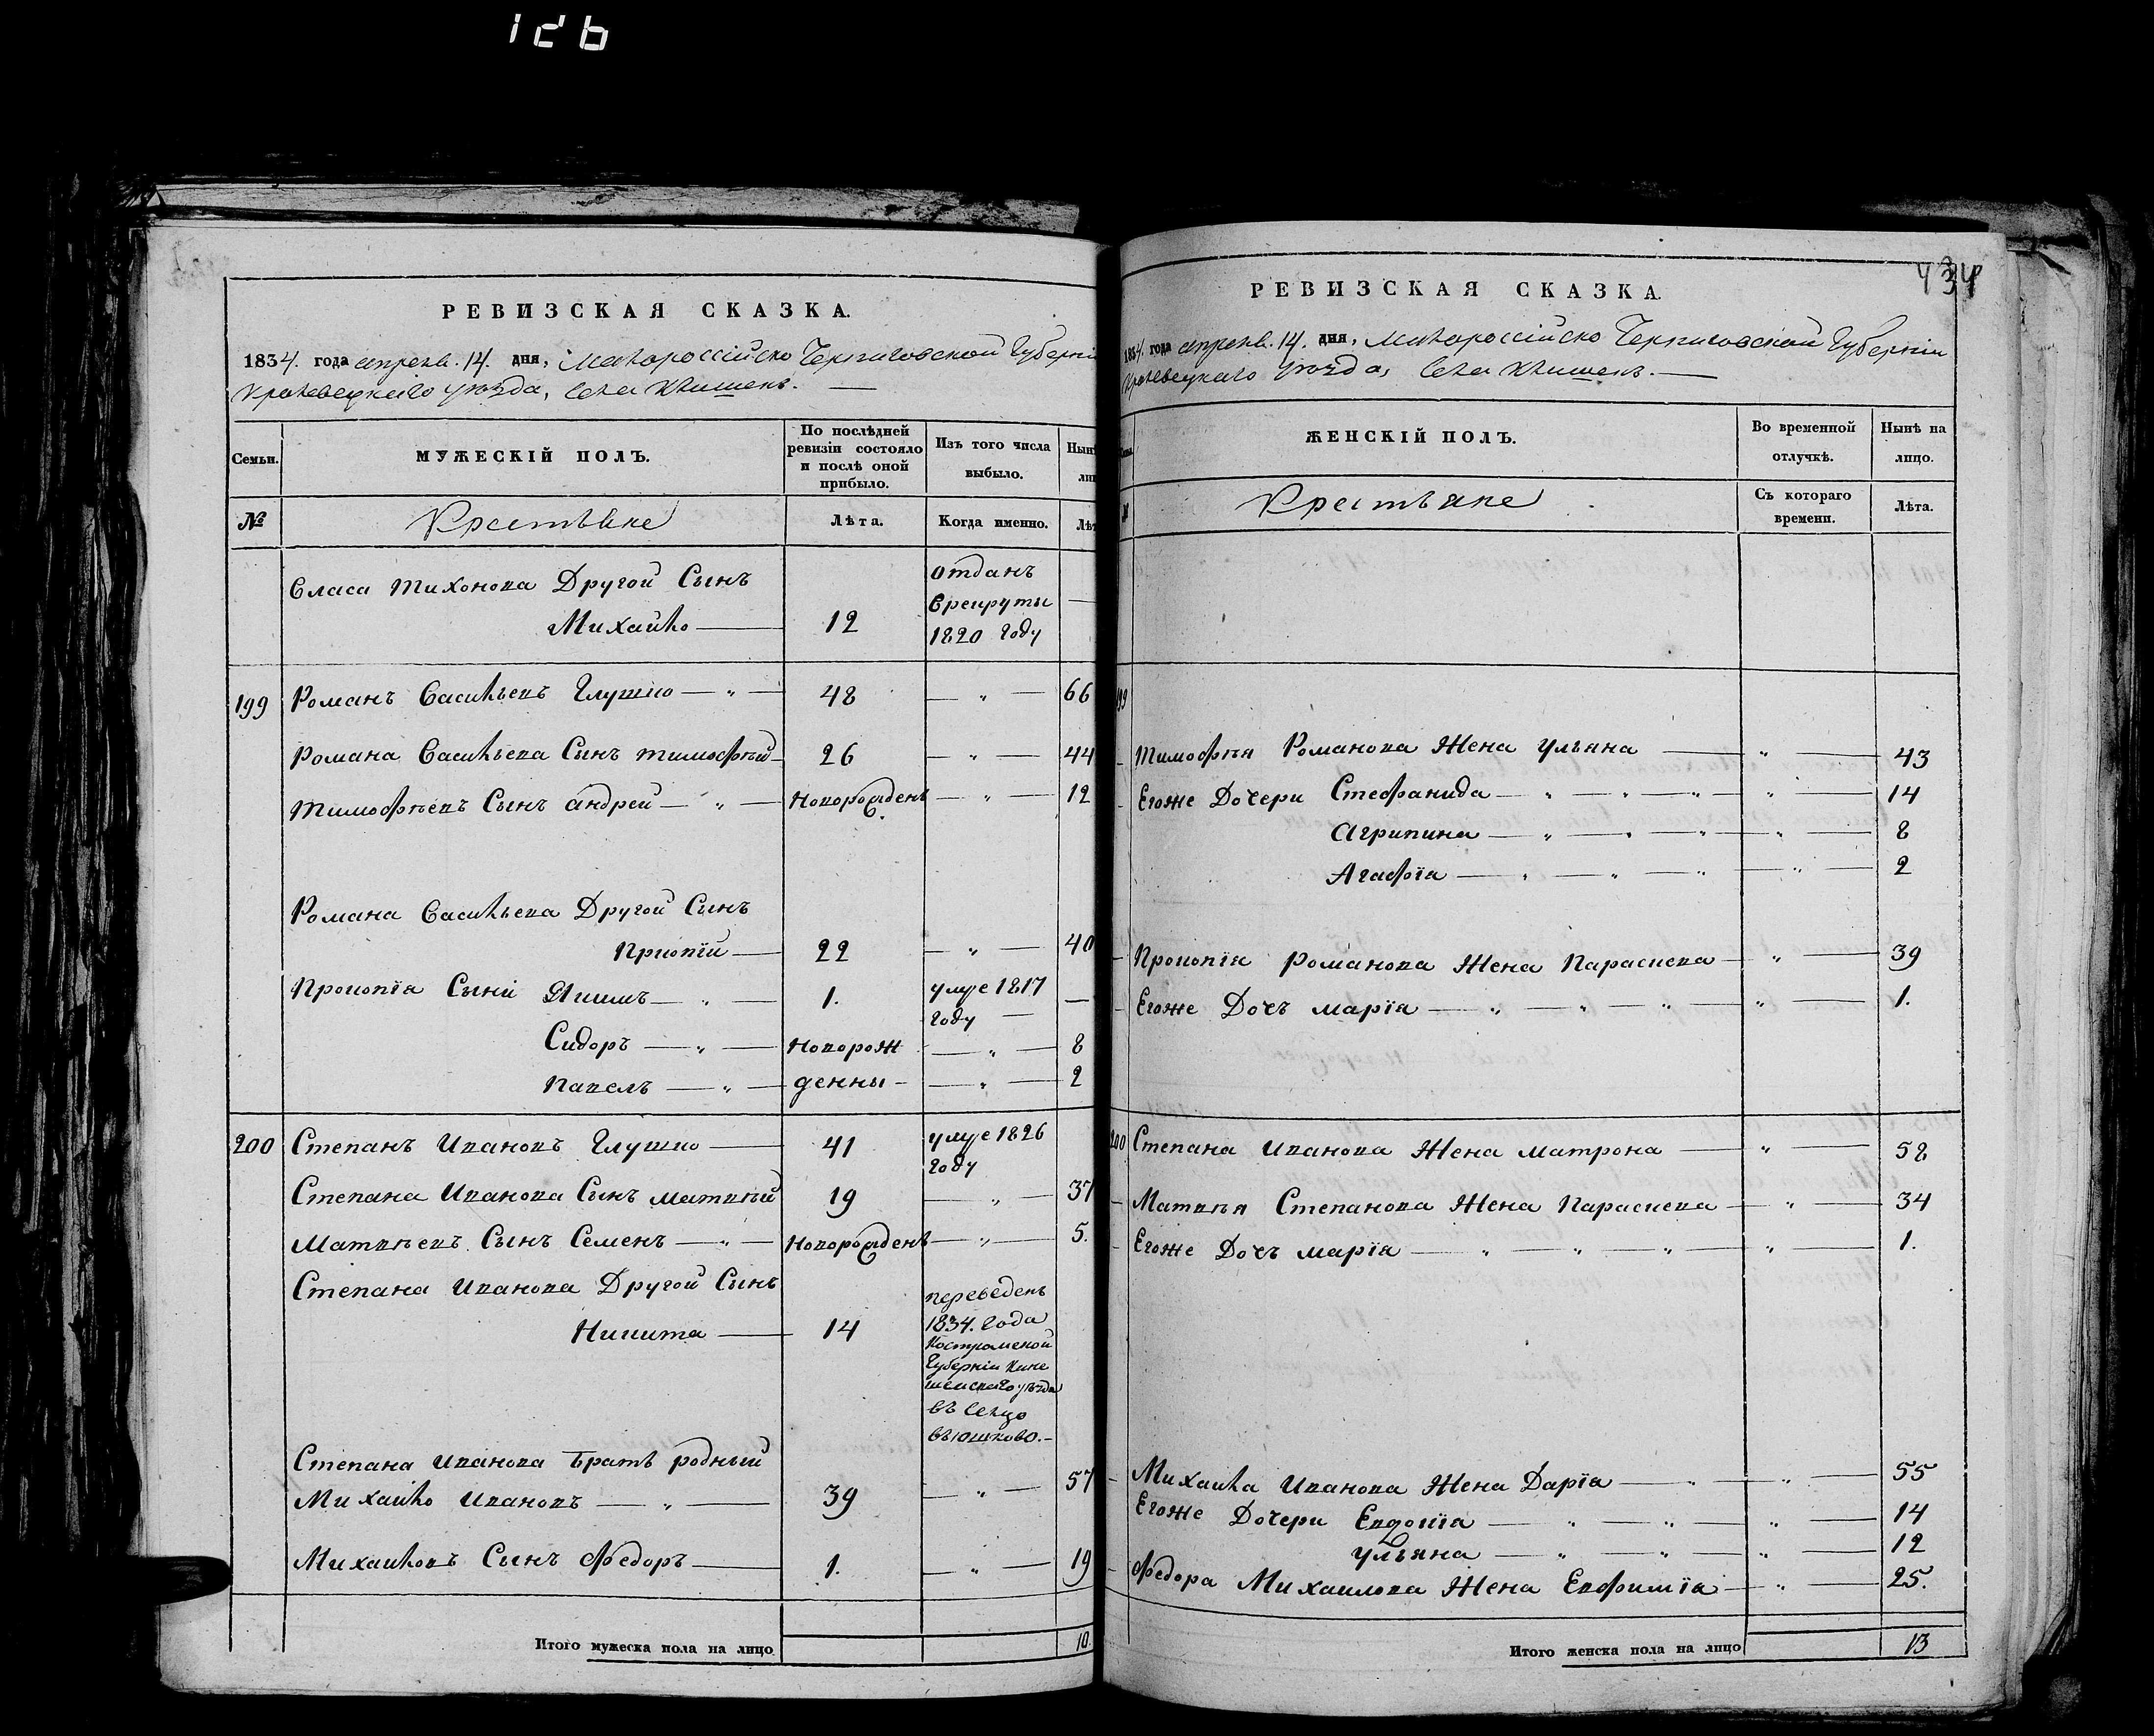 126
РЕВИЗСКАЯ СКАЗКА.
1834. года апреля. 14. дня, Малороссійско Черниговской Губерніи
Кролевецкаго уѣзда, Села Клишекъ.
Семьи.
МУЖЕСКІЙ ПОЛЪ.
По послѣдней ревизіи состояло и послѣ оной прибыло.
Изъ того числа выбыло.
№
Крестьяне
Лѣта.
Когда именно.
Власа Тихонова Другой Сынъ
Михайло 12 отданъ Врекруты 1820 Году
199 Романъ Васильевъ Глушко 48 66
Романа Васильева Сынъ Тимофѣй 26 44
Тимофѣевъ Сынъ Андрей Новорожденъ 12
Романа Васильева Другой Сынъ
Прокопій 22 40
Прокопія Сыны Якимъ 1. умре 1817 году
Сидоръ новорож 8
Павелъ денны 2
200 Степанъ Ивановъ Глушко 41 умре 1826 году
Степана Иванова Сынъ Матвѣй 19 37
Матвѣевъ Сынъ Семенъ Новорожденъ 5.
Степана Иванова Другой Сынъ
Никита 14 переведенъ 1834. Года Костромской Губерніи Кинешемскаго уѣзда въ Сельцо Вьюшково.
Степана Иванова Братъ родный
Михайло Ивановъ 39 57
Михайловъ Сынъ Федоръ 1. 19
Итого мужеска пола на лицо 10.
434
РЕВИЗСКАЯ СКАЗКА.
1834. года апреля. 14. дня, Малороссійско Черниговской Губерніи
Кролевецкаго уѣзда, Села Клишекъ.
ЖЕНСКІЙ ПОЛЪ.
Во временной отлучкѣ.
Нынѣ на лицо.
Крестьяне
Съ котораго времени.
Лѣта.
199
Тимофѣя Романова Жена Ульяна 43
Егоже Дочери Стефанида 14
Агрипина 8
Агафія 2
Прокопія Романова Жена Параскева 39
Егоже Дочь Марія 1.
200 Степана Иванова Жена Матрона 58
Матвѣя Степанова Жена Параскева 34
Егоже Дочь Марія 1.
Михайла Иванова Жена Дарія 55
Егоже Дочери Евдокія 14
Ульяна 12
Федора Михаилова Жена Евфимія 25.
Итого женска пола на лицо 13